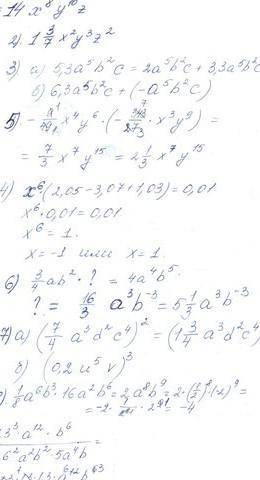 = 14 x⁸ y¹⁰ z
2) 1 3/7 x² y³ z²
3) а) 5,3a⁵b²c = 2a⁵b²c + 3,3a⁵b²c
б) 6,3a⁵b²c + (-a⁵b²c)
= 7/3 x⁷ y¹⁵ = 2 1/3 x⁷ y¹⁵
4) x⁶(2,05-3,07+1,03) = 0,01
x⁶·0,01 = 0,01
x⁶ = 1.
x = -1 или x = 1.
6) 3/4 ab² · ? = 4a⁴b⁵.
? = 16/3 a³b⁻³ = 5 1/3 a³b⁻³
7) а) (7/4 a³d²c⁴)² = (1 3/4 a³d²c⁴
б) (0,2 u⁵ v)³
1/8 a⁶b³·16a²b⁶ = 2a⁸b⁹ = 2·(1/2)⁸·(-2)⁹ =
= -4
3³·a¹²·b⁶
6²a²b²·5a⁴b